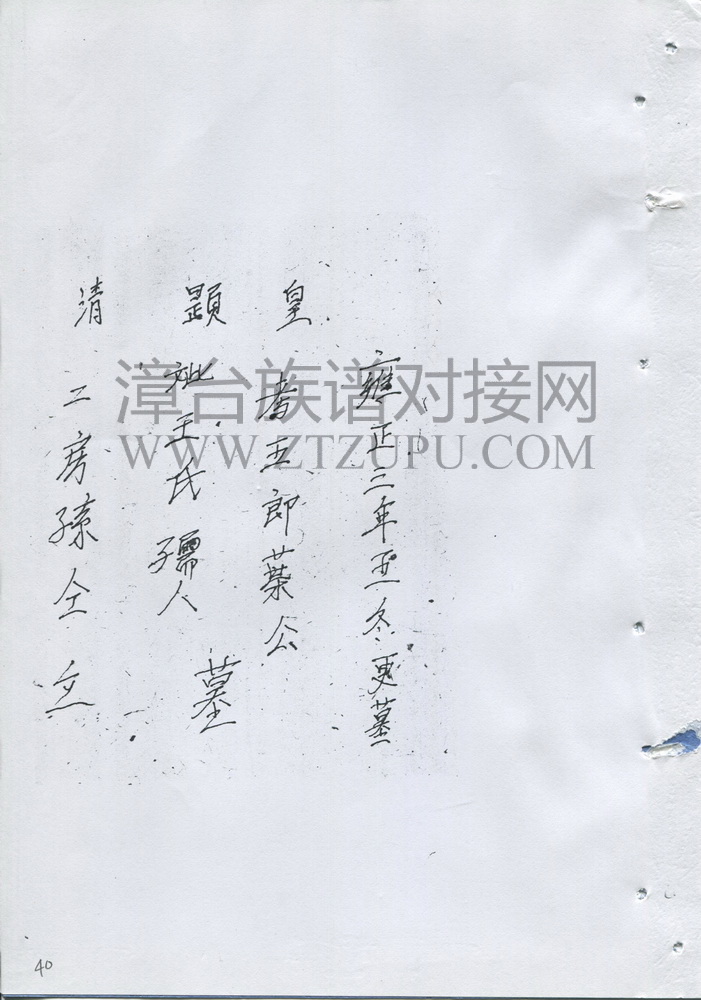 雍正三年至冬更墓
皇 考五郎葉公
顕 妣王氏孺人 墓
清 二房孫仝立
漳台族谱对接网
WWW.ZTZUPU.COM
40